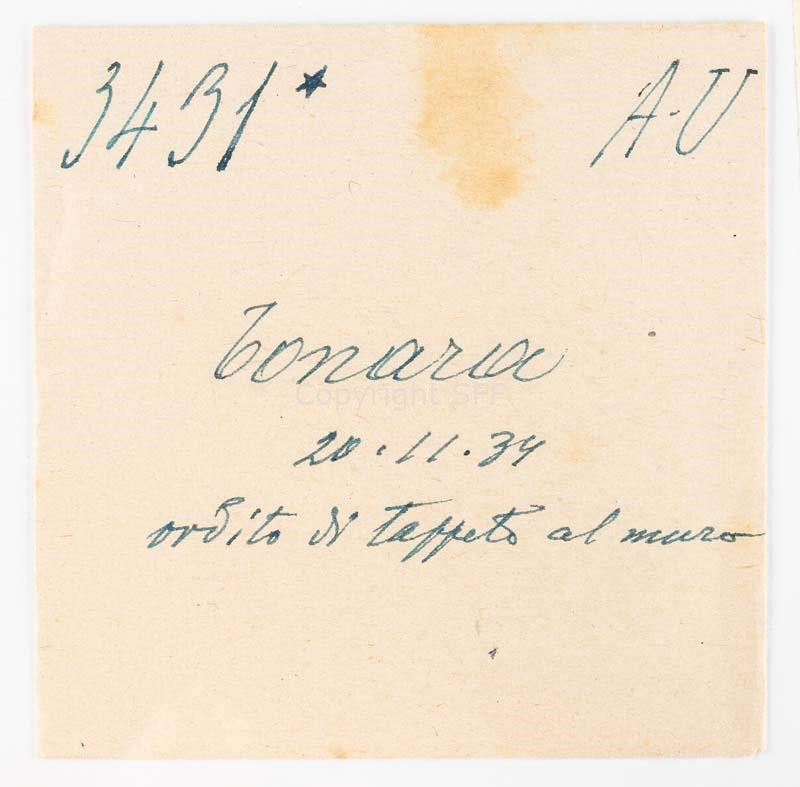 3431* A·U
Tonara
Copyright SFF
20·11·34
ordito di tappeto al muro